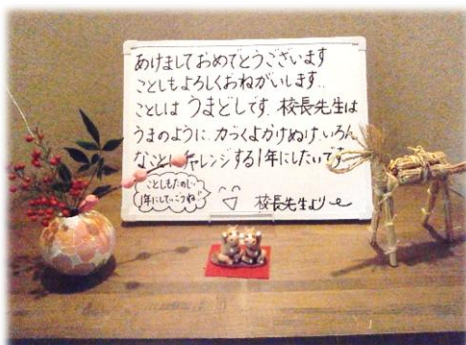 あけましておめでとうございます
ことしもよろしくおねがいします。
ことしは うまどしです。校長先生は
うまのように、力づよくかけぬけ、いろん
なことにチャレンジする1年にしたいです
ことしもたのしい
1年にしていこうね
校長先生より